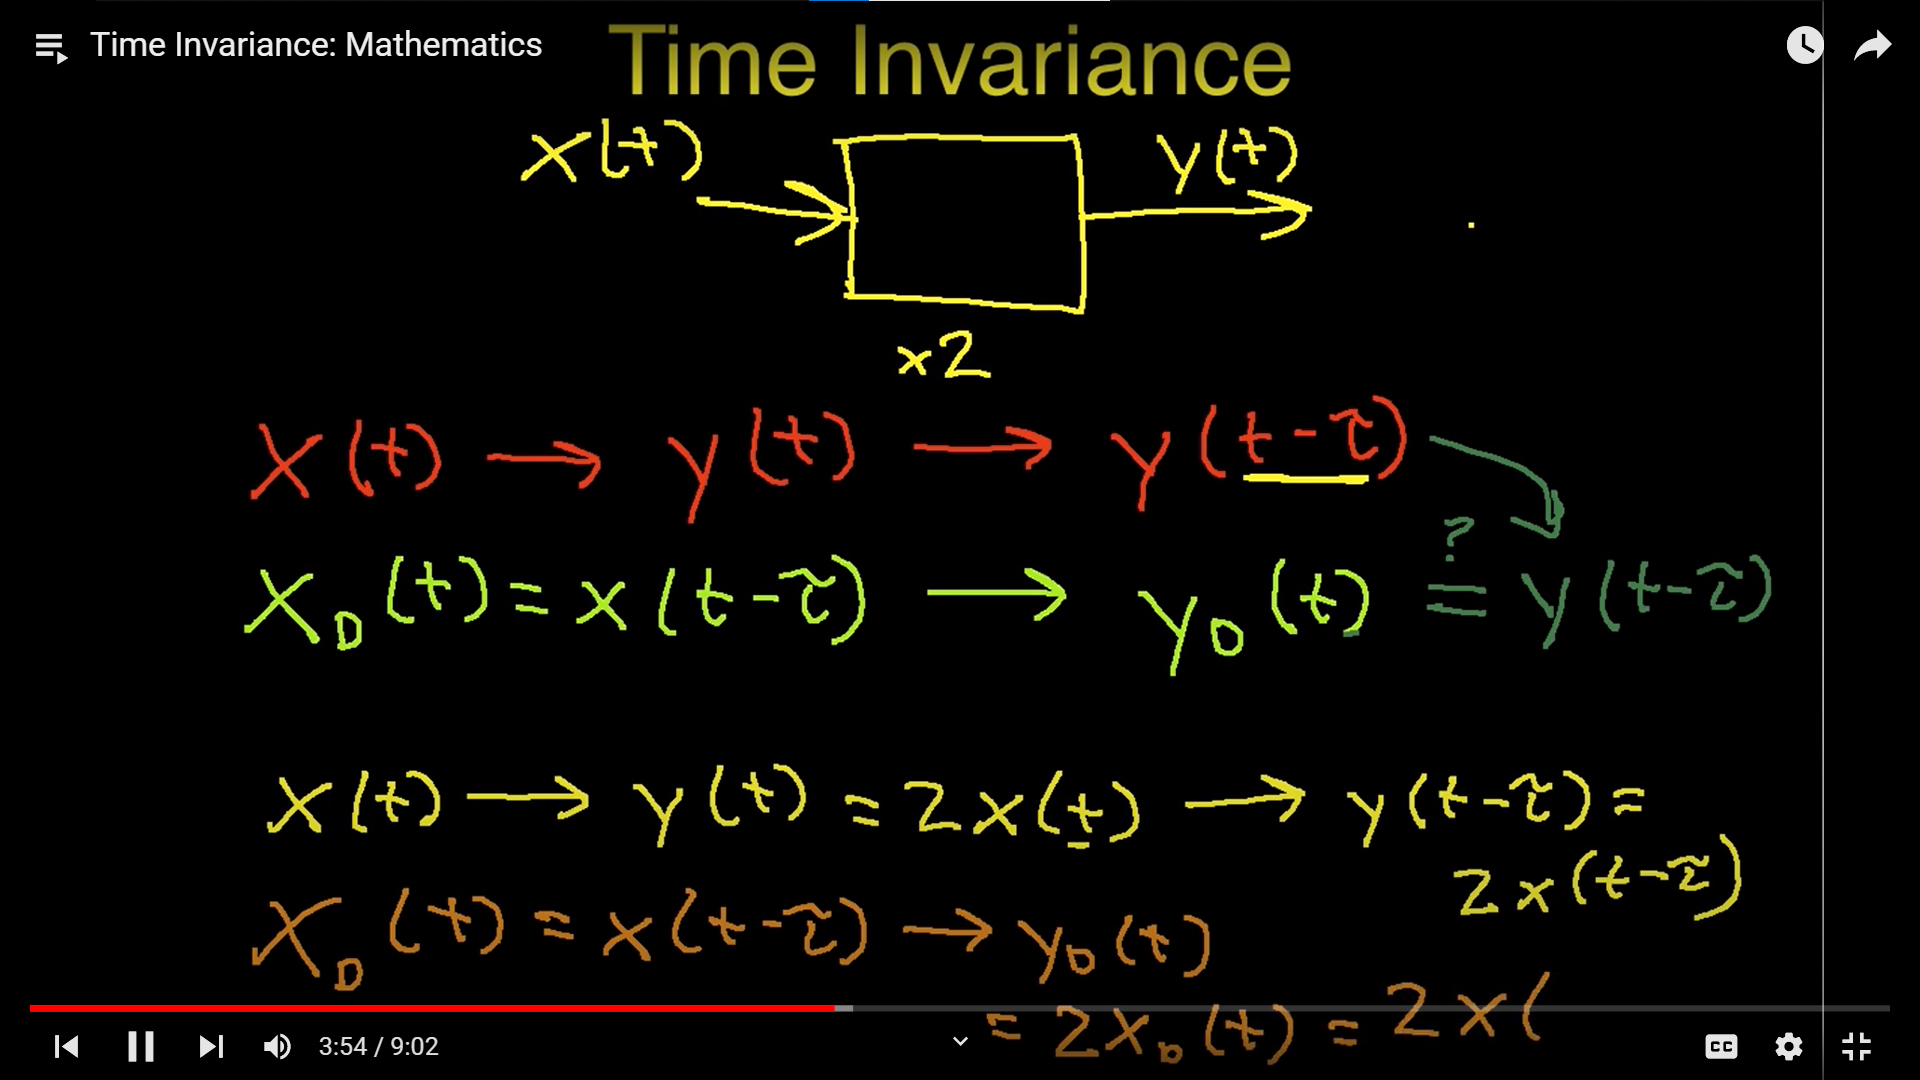 Time Invariance: Mathematics
Time Invariance
x(t) → y(t)
x2
x(t) → y(t) → y(t-τ)
x_D(t) = x(t-τ) → y_D(t) ?= y(t-τ)
x(t) → y(t) = 2x(t) → y(t-τ) =
2x(t-τ)
x_D(t) = x(t-τ) → y_D(t)
= 2x_D(t) = 2x(
3:54 / 9:02
CC